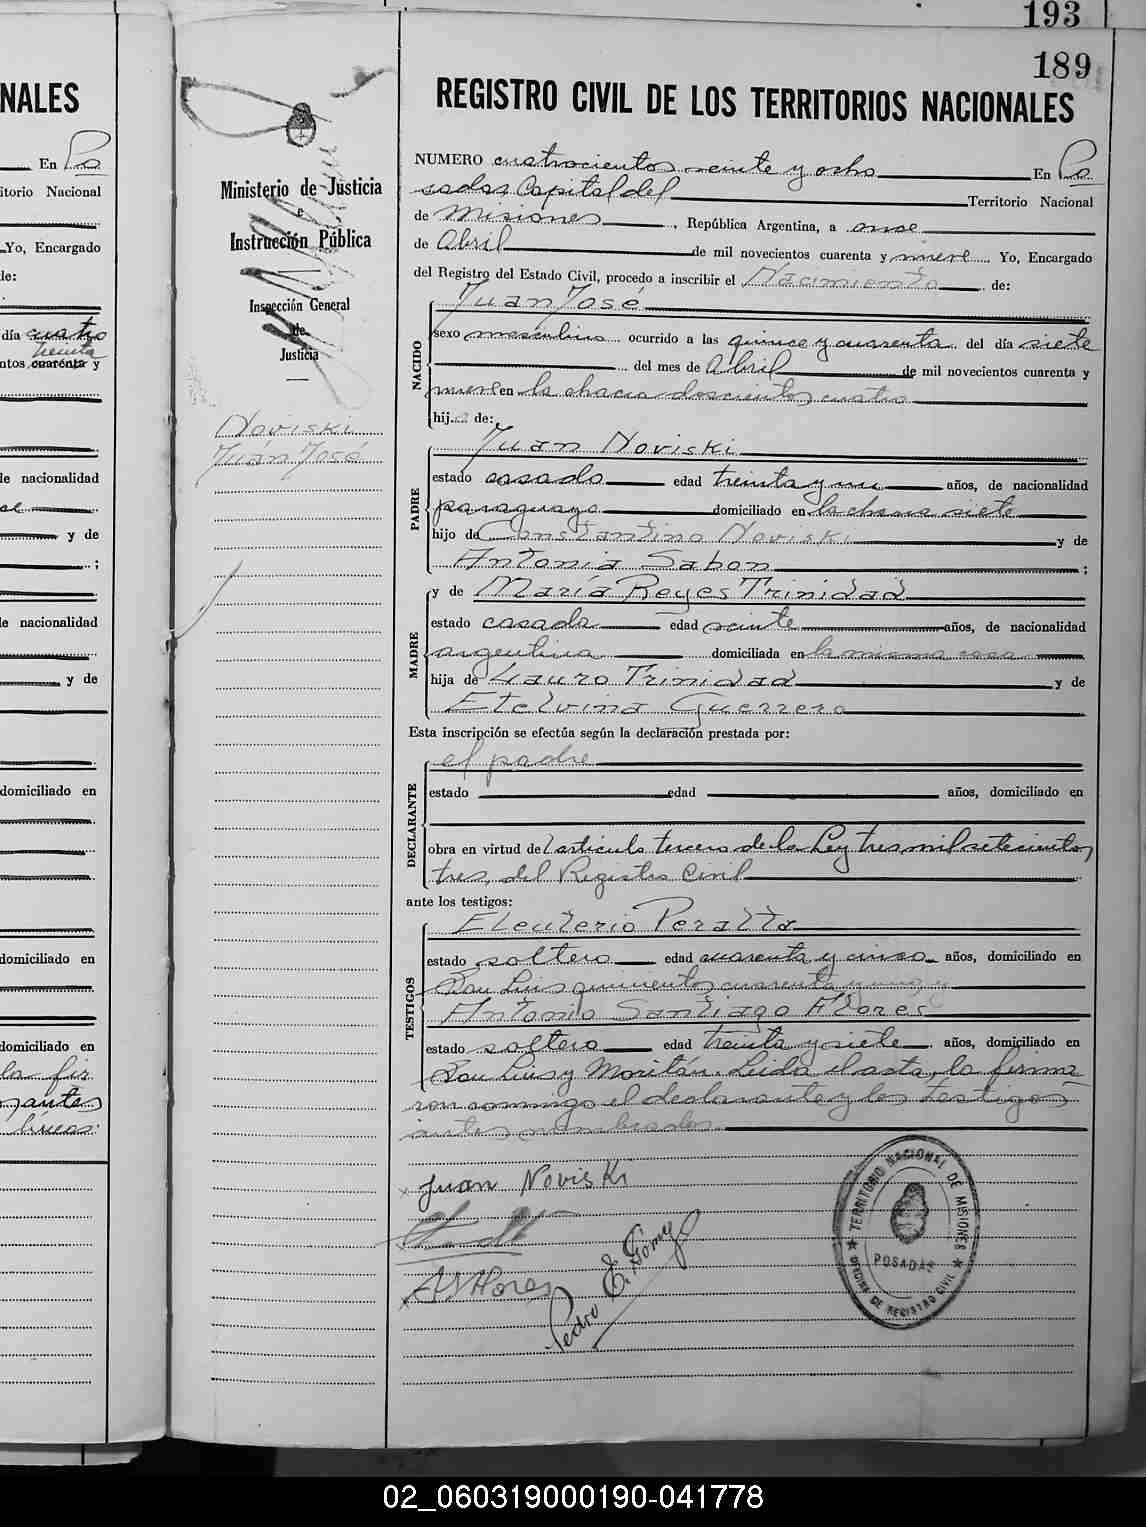 193
189
NALES
REGISTRO CIVIL DE LOS TERRITORIOS NACIONALES
En Po
itorio Nacional
Yo, Encargado
le:
día cuatro
treinta
ntos cuarenta y
le nacionalidad
y de
;
le nacionalidad
y de
domiciliado en
domiciliado en
domiciliado en
la fir
antes
Ministerio de Justicia
e
Instrucción Pública
Inspección General
de
Justicia
Noviski
Juan José
NUMERO cuatrocientos veinte y ocho En Po
sadas Capital del Territorio Nacional
de Misiones, República Argentina, a once
de Abril de mil novecientos cuarenta y nueve. Yo, Encargado
del Registro del Estado Civil, procedo a inscribir el Nacimiento de:
NACIDO
Juan José
sexo masculino ocurrido a las quince y cuarenta del día siete
del mes de Abril de mil novecientos cuarenta y
nueve en la chacra doscientos cuatro
hijo de:
PADRE
Juan Noviski
estado casado edad treinta y un años, de nacionalidad
paraguayo domiciliado en la chacra siete
hijo de Constantino Noviski y de
Antonia Sabon ;
MADRE
y de María Reyes Trinidad
estado casada edad veinte años, de nacionalidad
argentina domiciliada en la misma casa
hija de Lauro Trinidad y de
Etelvina Guerrero
Esta inscripción se efectúa según la declaración prestada por:
DECLARANTE
el padre
estado edad años, domiciliado en
obra en virtud del artículo tercero de la Ley tres mil setecientos
tres, del Registro Civil
ante los testigos:
TESTIGOS
Eleuterio Peralta
estado soltero edad cuarenta y cinco años, domiciliado en
San Luis quinientos cuarenta y uno y
Antonio Santiago Flores
estado soltero edad treinta y siete años, domiciliado en
San Luis y Moritán. Leida el acta, la firma
ron conmigo el declarante y los testigos
antes nombrados.
x Juan Noviski
x
x A S Flores
Pedro E. Gómez
TERRITORIO NACIONAL DE MISIONES
POSADAS
OFICINA DE REGISTRO CIVIL
02_060319000190-041778